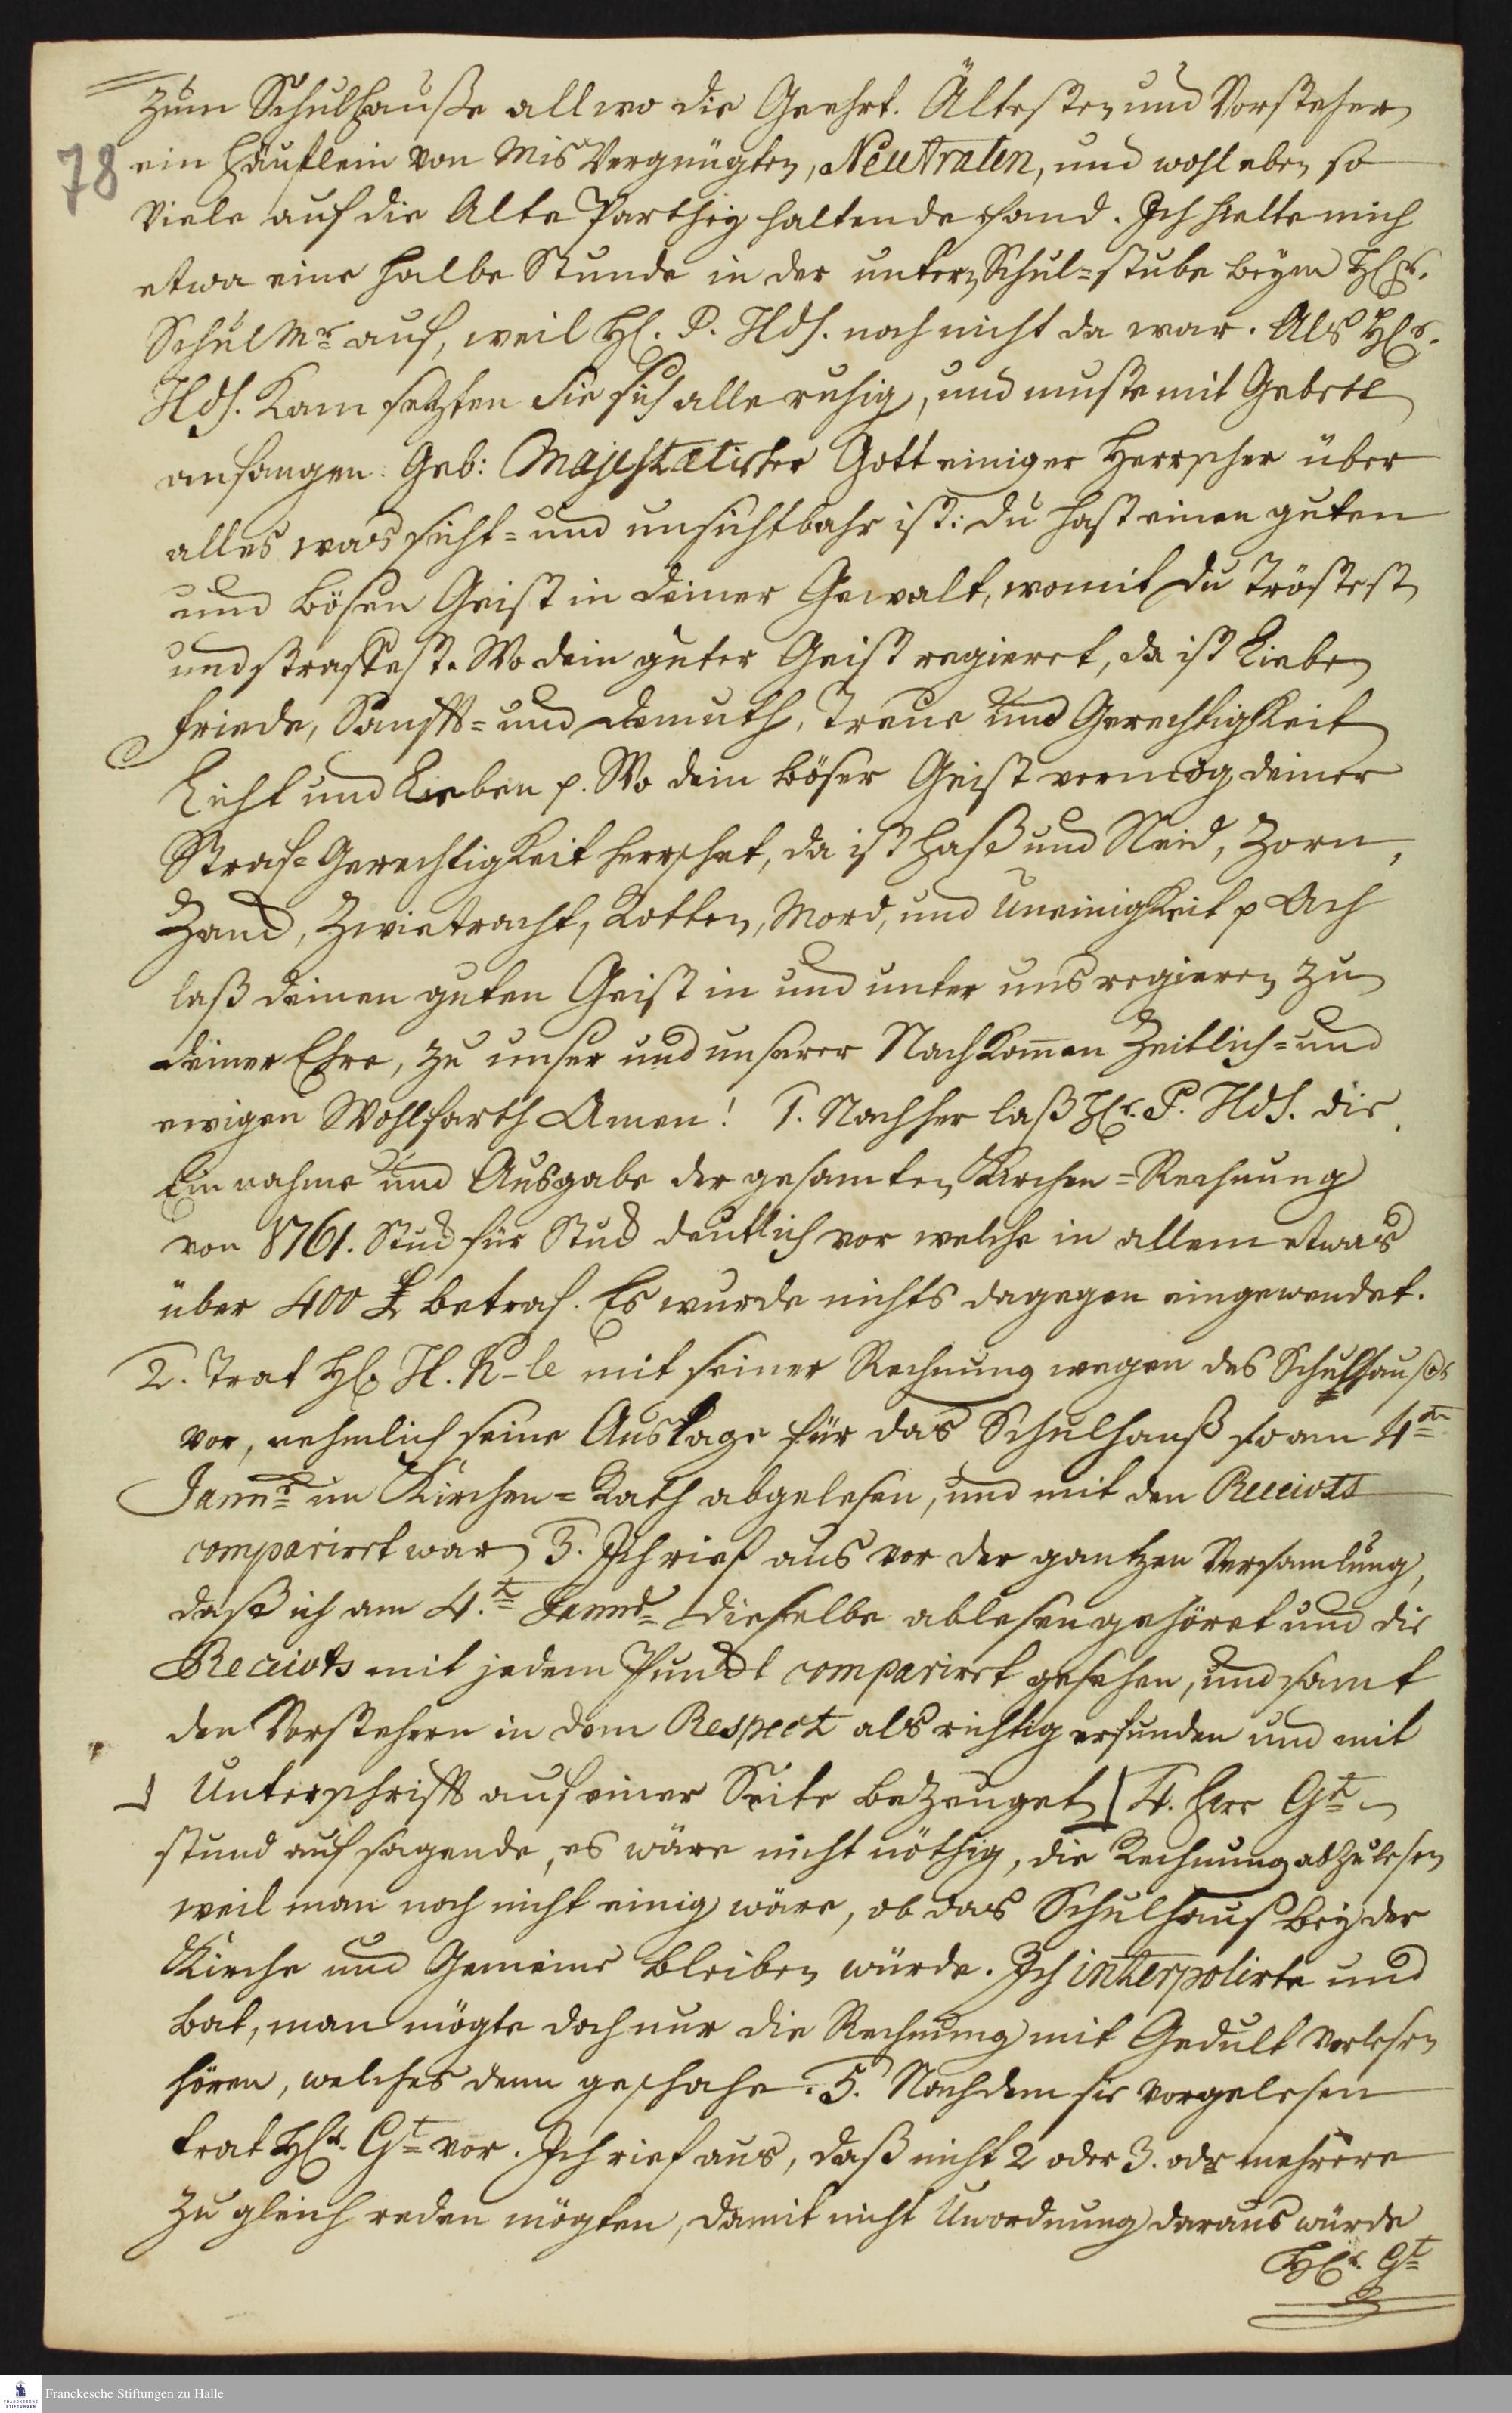 zum Schulhauße allwo die Geehrt. Ältesten und Vorsteher
78
ein Häuflein von MisVergnügten, Neutralen, und wohl eben so
viele auf die Alte Parthey haltende fand. Ich hielte mich
etwa eine halbe Stunde in der untern Schul=stube beym HE.
SchulMr auf, weil H. P. Hds. noch nicht da war. Als HEr.
Hds. Kam setzten Sie sich alle ruhig, und muste mit Gebete
anfangen. Geb: Majestætischer Gott einiger Herrscher über
alles was sicht= und unsichtbahr ist: du hast einen guten
und bösen Geist in deiner Gewalt, womit du tröstest
und straffest. Wo dein guter Geist regieret, da ist Liebe
Friede, Sanfft= und Demuth, Treue und Gerechtigkeit
Licht und Leben p. Wo dein böser Geist vermög deiner
Straf=Gerechtigkeit herrschet, da ist Haß und Neid, Zorn,
Zanck, Zwietracht, Rotten, Mord, und Uneinigkeit p Ach
laß deinen guten Geist in und unter uns regieren zu
deiner Ehre, zu unser und unserer Nachkommen Zeitlich= und
ewigen Wohlfarth Amen! 1. Nachher laß HEr. P. Hds. die
Einnahme und Ausgabe der gesamten Kirchen=Rechnung
von 1761. Stück für Stück deutlich vor welche in allem etwas
über 400 £ betraf. Es wurde nichts dagegen eingewendet.
2. Trat HE. H. K-le mit seiner Rechnung wegen des Schulhauses
vor, nehmlich seine Auslage für das Schulhauß so am 4ten
Jannr im Kirchen=Rath abgelesen, und mit den Receivts
compariret war 3. Ich rief aus vor der gantzen Versamlung,
daß ich am 4.ten Jannr dieselbe ablesen gehöret und die
Receivts mit jedem Punckt compariret gesehen, und samt
den Vorstehern in dem Respect als richtig erfunden und mit
Unterschrifft auf einer Seite bezeuget 4. Herr Gt
stund auf sagende, es wäre nicht nöthig, die Rechnung abzulesen
weil man noch nicht einig wäre, ob das Schulhaus bey der
Kirche und Gemeine bleiben würde. Ich interpolirte und
bat, man mögte doch nur die Rechnung mit Gedult verlesen
hören, welches denn geschahe. 5. Nachdem sie vorgelesen
trat HEr. Gt vor. Ich rief aus, daß nicht 2 oder 3. oder mehrere
zugleich reden mögten, damit nicht Unordnung daraus würde
HEr. Gt
Franckesche Stiftungen zu Halle